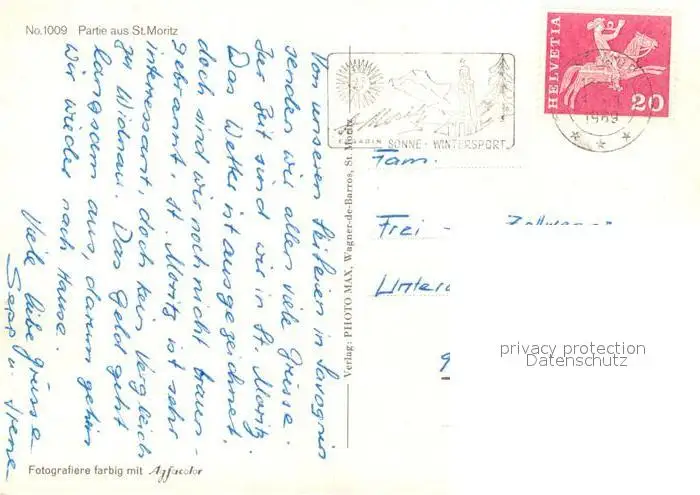 No.1009 Partie aus St.Moritz
Von unseren Skiferien in Savognin
senden wir allen viele Grüsse.
Zur Zeit sind wir in St. Moritz.
Das Wetter ist ausgezeichnet,
doch sind wir noch nicht braun-
gebrannt. St. Moritz ist sehr
interessant, doch kein Vergleich
zu Widnau. Das Geld geht
langsam aus, darum gehen
wir wieder nach Hause.
Viele liebe Grüsse
Sepp u. Irene
Fotografiere farbig mit Agfacolor
Verlag: PHOTO MAX, Wagner-de-Barros, St. Moritz
St. Moritz
SONNE · WINTERSPORT
1969
HELVETIA
20
Fam.
Frei -
Unter
9
privacy protection
Datenschutz